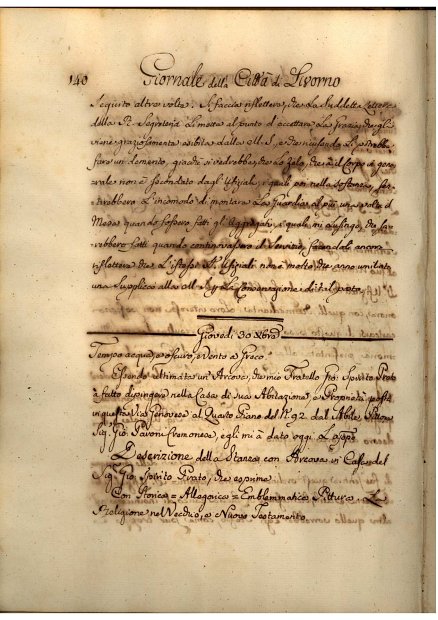 140 Giornale della Città di Livorno
seguito altra volta. Si faccia riflettere, che la suddetta Lettera
della Rl. Segreteria li mette al punto di accettare la Grazia, che gli
viene graziosamente esibita dalla M. S., e che ricusandola si potrebbe
fare un demerito, giacchè si vedrebbe, che lo Zelo, che à il Corpo in gene=
rale non è secondato dagl'Ufiziali, i quali poi nella sostanza, sof=
frirebbero l'incomodo di montare la Guardia al più una volta il
Mese quando fossero fatti gl'Aggregati, i quali mi lusingo, che sa=
rebbero fatti quando continuassero il Servizio, facendoli ancora
riflettere che l'istessi Sri. Ufiziali non è molto che anno umiliata
una Supplica alla M. S. per la Conservazione di tal posto.
Giovedì 30 Xbre
Tempo acqua, e oscuro, Vento a Greco.
Essendo ultimata un'Arcova, che mio Fratello Gio: Spirito Prato
à fatto dipingere nella Casa di sua Abitazione, e Proprietà posta
in questa Via Genovese al Quarto Piano del N. 92 dal Abile Pittore
Sig. Gio. Pavoni Cremonese, egli mi à dato oggi L'appo.
Descrizione della Stanza con Arcova in Casa del
Sig. Gio. Spirito Prato, che esprime
Con Storica = Allegorica = Emblemmatica Pittura La
Religione nel Vecchio, e Nuovo Testamento